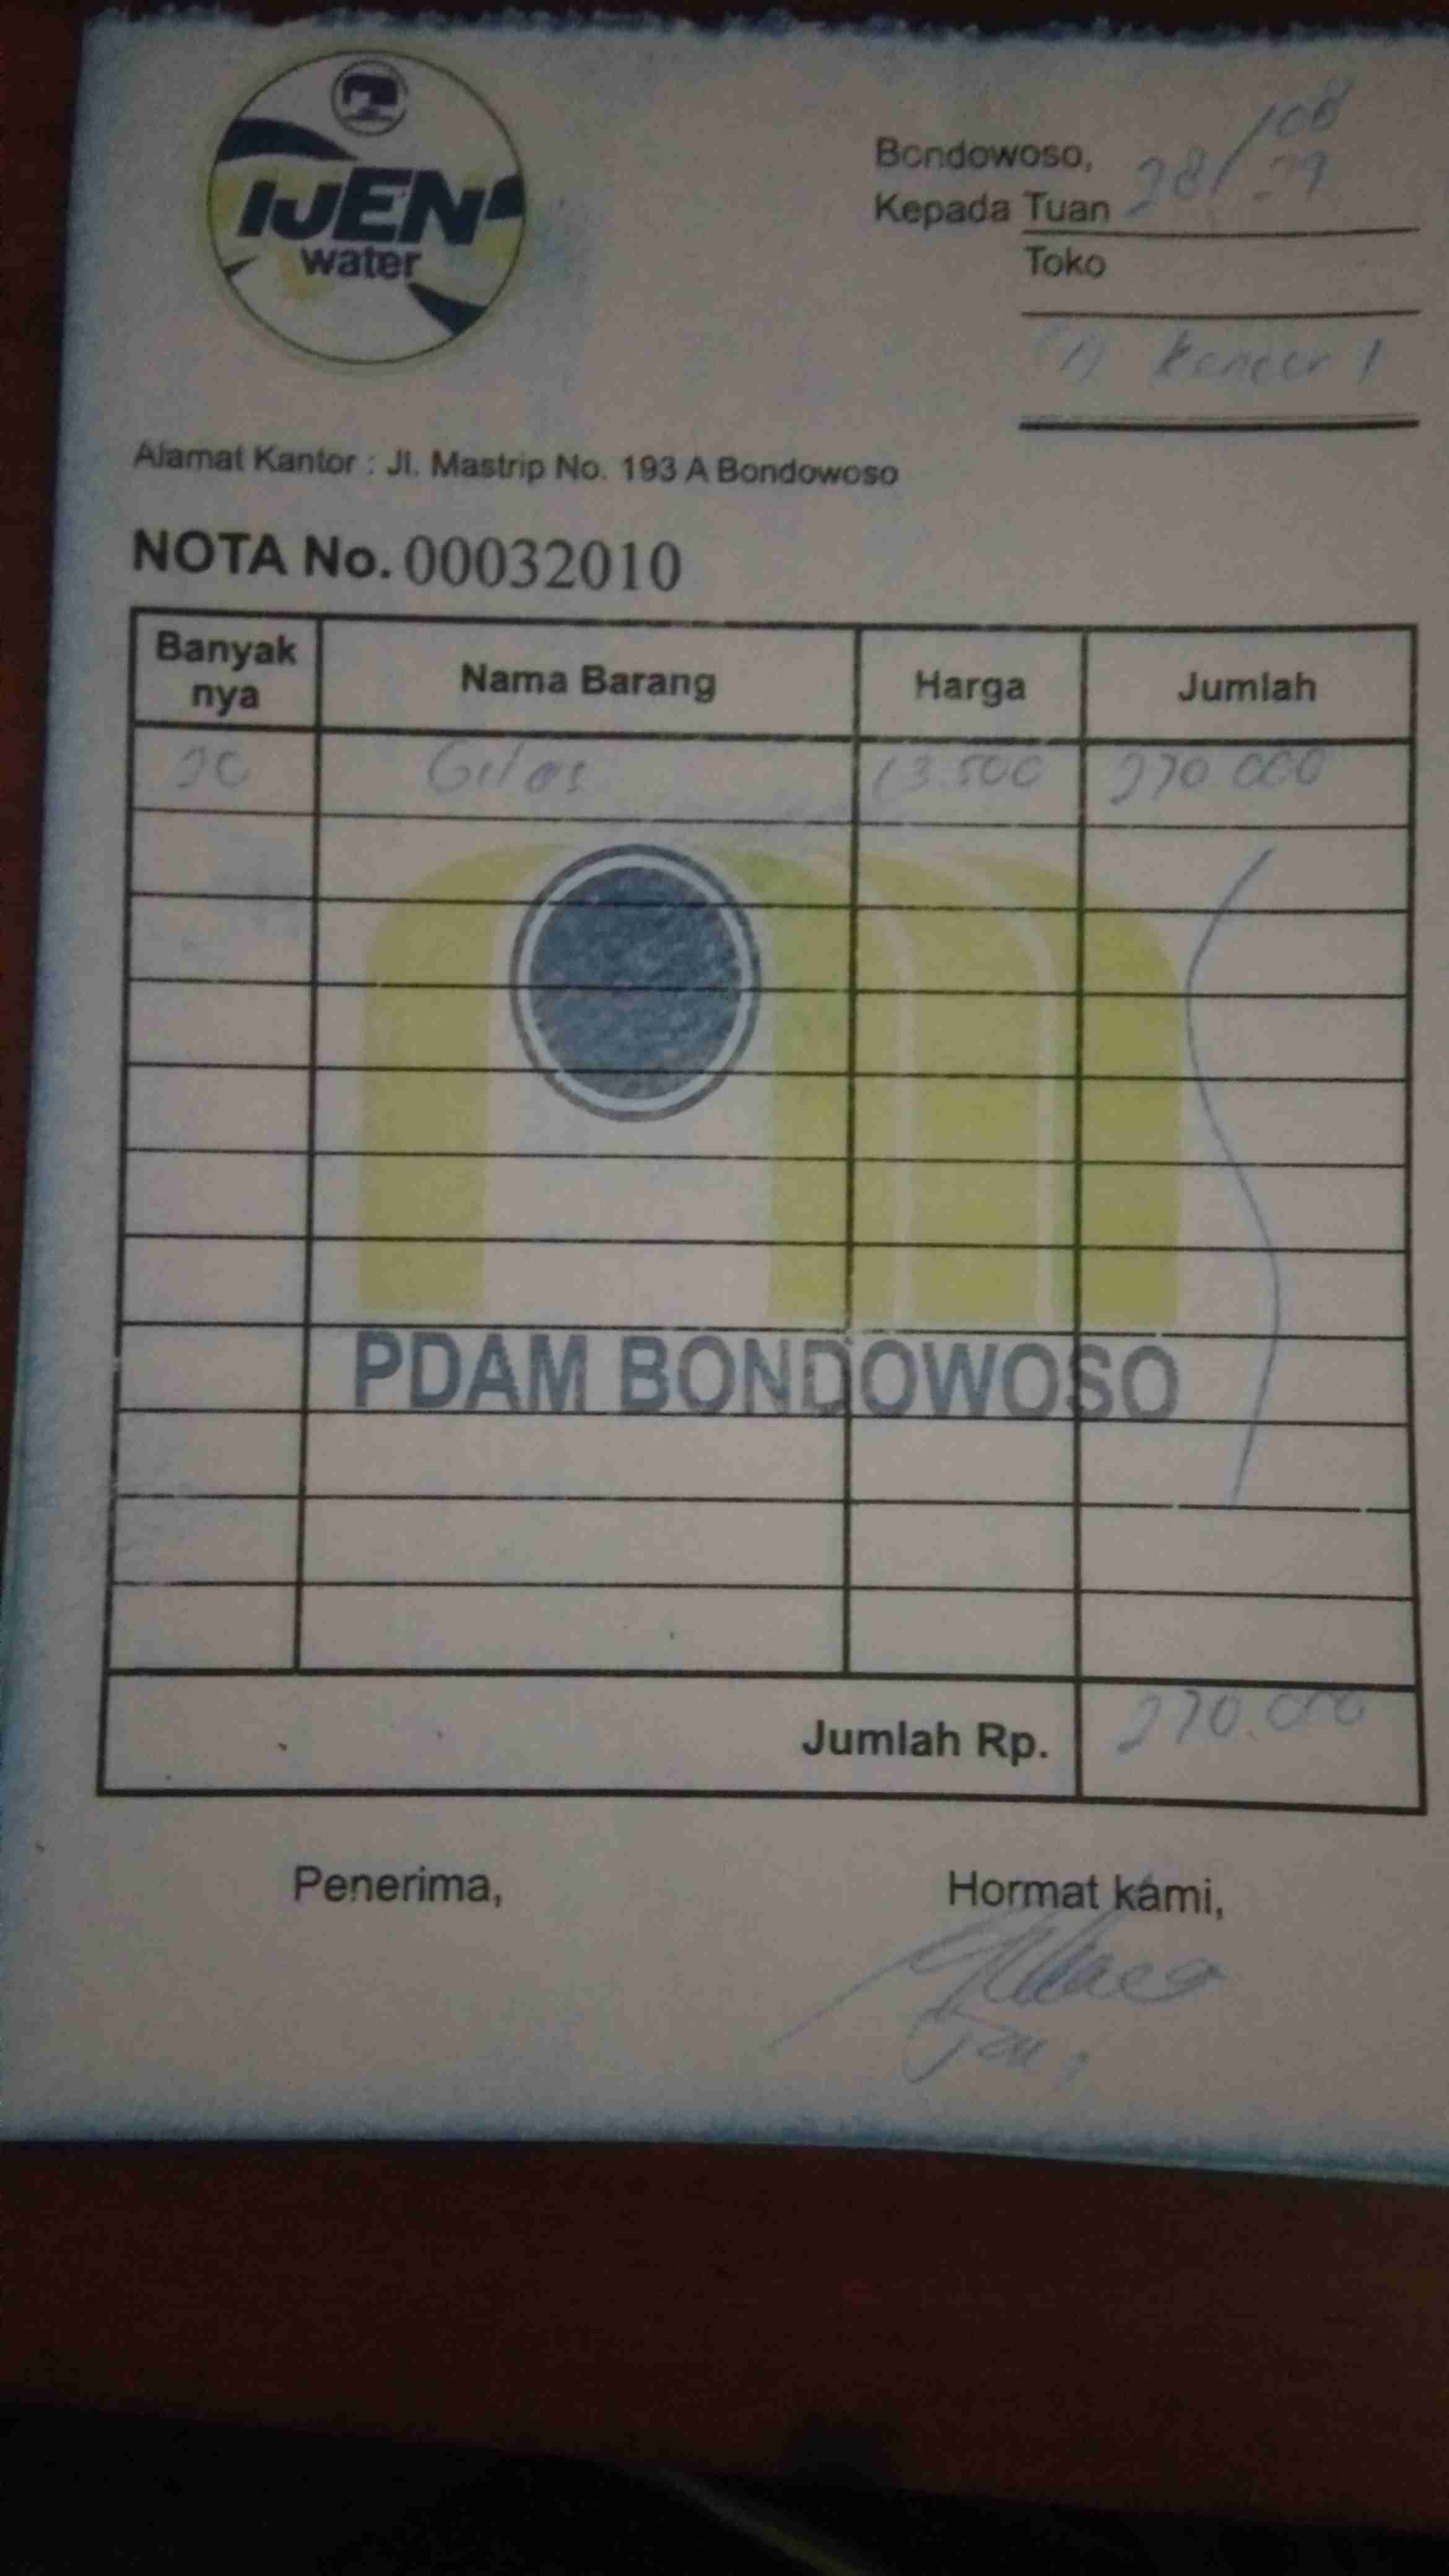 IJEN
water
Bondowoso, 28/08
Kepada Tuan
Toko
Alamat Kantor : Jl. Mastrip No. 193 A Bondowoso
NOTA No. 00032010
Banyak nya Nama Barang Harga Jumlah
20 Gelas 13.500 270.000
PDAM BONDOWOSO
Jumlah Rp. 270.000
Penerima, Hormat kami,